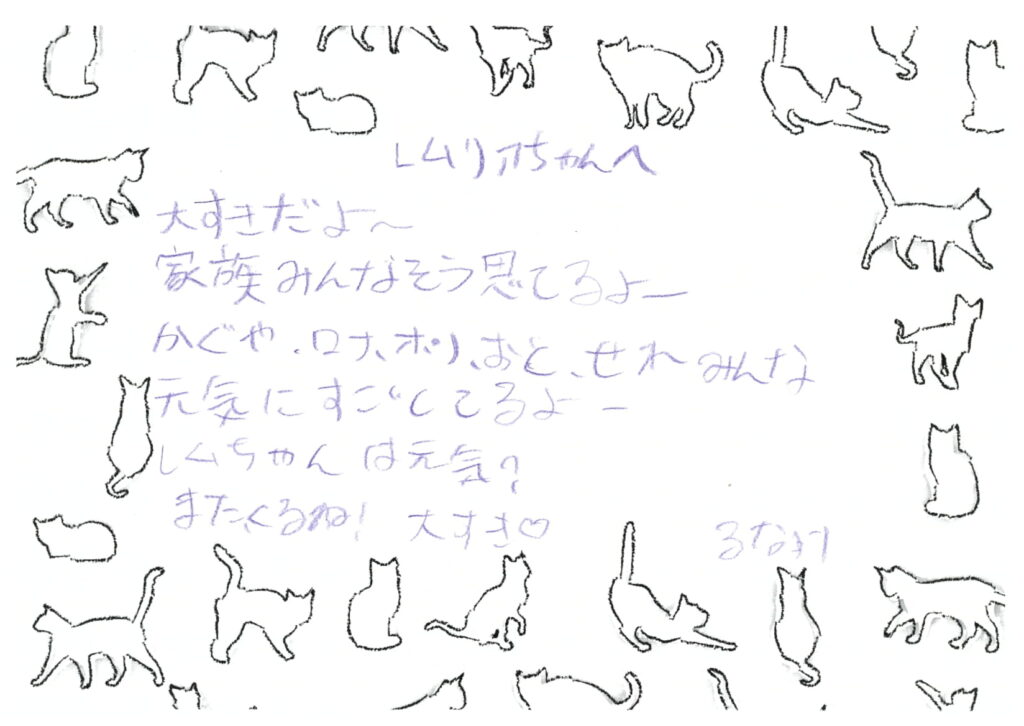 レムリアちゃんへ
大すきだよ～
家族みんなそう思てるよー
かぐや、ロナ、ポリ、おと、せれ みんな
元気にすごしてるよー
レムちゃんは元気?
また、くるね! 大すき♡
るなより